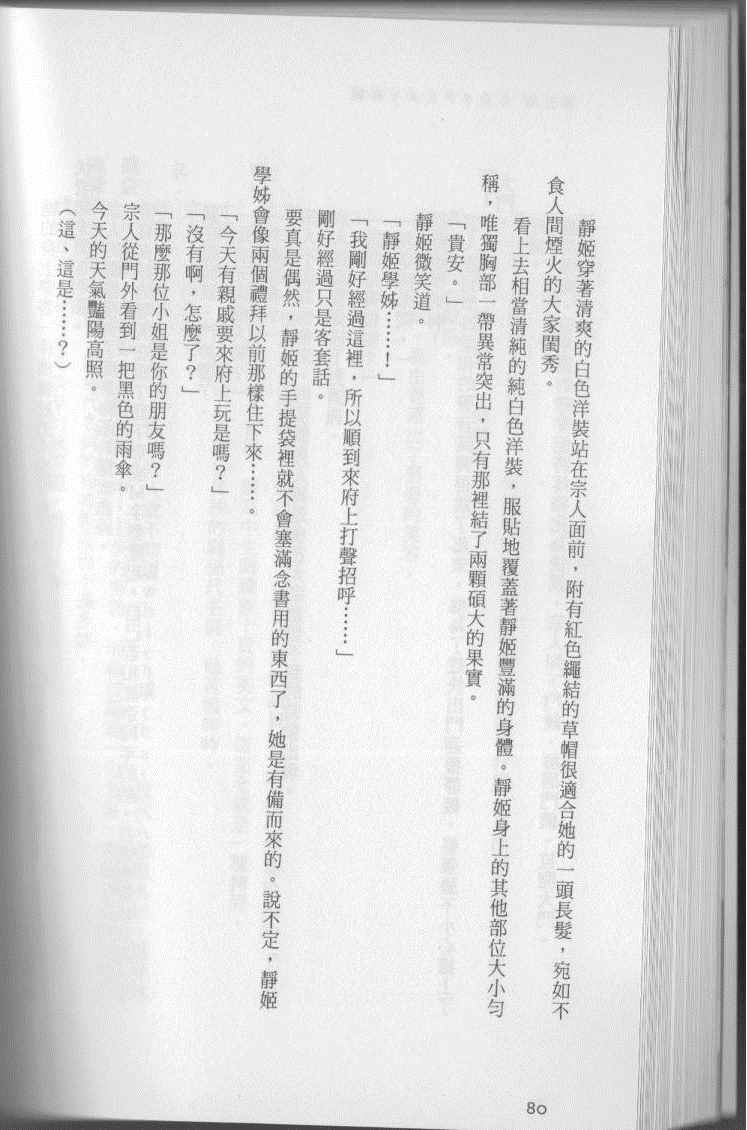 靜姬穿著清爽的白色洋裝站在宗人面前，附有紅色繩結的草帽很適合她的一頭長髮，宛如不
食人間煙火的大家閨秀。
看上去相當清純的純白色洋裝，服貼地覆蓋著靜姬豐滿的身體。靜姬身上的其他部位大小勻
稱，唯獨胸部一帶異常突出，只有那裡結了兩顆碩大的果實。
「貴安。」
靜姬微笑道。
「靜姬學姊……！」
「我剛好經過這裡，所以順到來府上打聲招呼……」
剛好經過只是客套話。
要真是偶然，靜姬的手提袋裡就不會塞滿念書用的東西了，她是有備而來的。說不定，靜姬
學姊會像兩個禮拜以前那樣住下來……。
「今天有親戚要來府上玩是嗎？」
「沒有啊，怎麼了？」
「那麼那位小姐是你的朋友嗎？」
宗人從門外看到一把黑色的雨傘。
今天的天氣豔陽高照。
（這、這是……？）
80